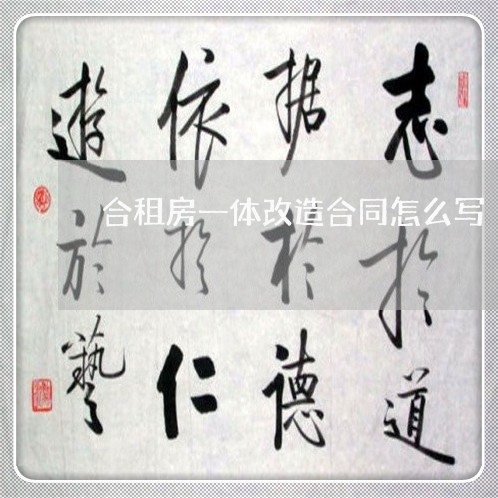 志於道
据於德
依於仁
遊於藝
合租房一体改造合同怎么写